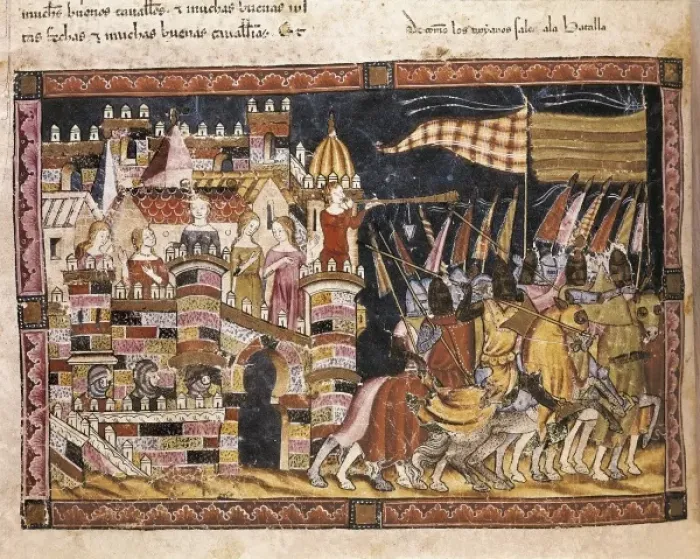 muchos buenos cavallos. & muchas buenas
tas fechas & muchas buenas cavallias.
De como los troyanos salen ala batalla